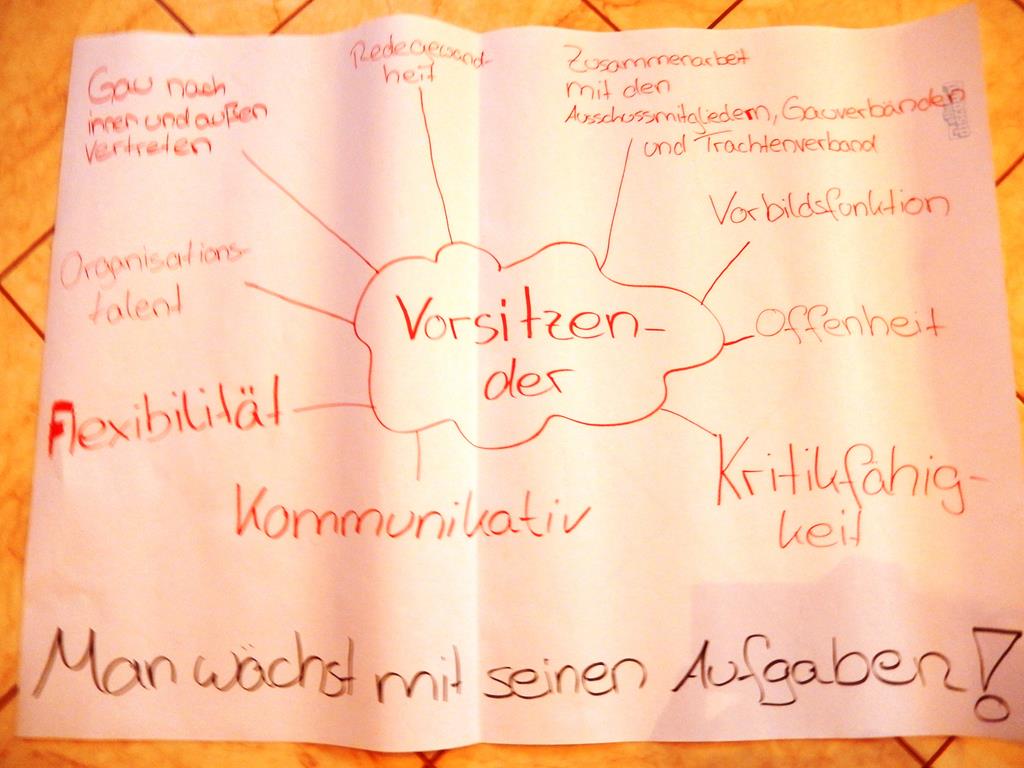 Gau nach
innen und außen
vertreten
Redegewand-
heit
Zusammenarbeit
mit den
Ausschussmitgliedern, Gauverbänden
und Trachtenverband
Vorbildsfunktion
Organisations-
talent
Vorsitzen-
der
Offenheit
Flexibilität
Kommunikativ
Kritikfähig-
keit
Man wächst mit seinen Aufgaben!